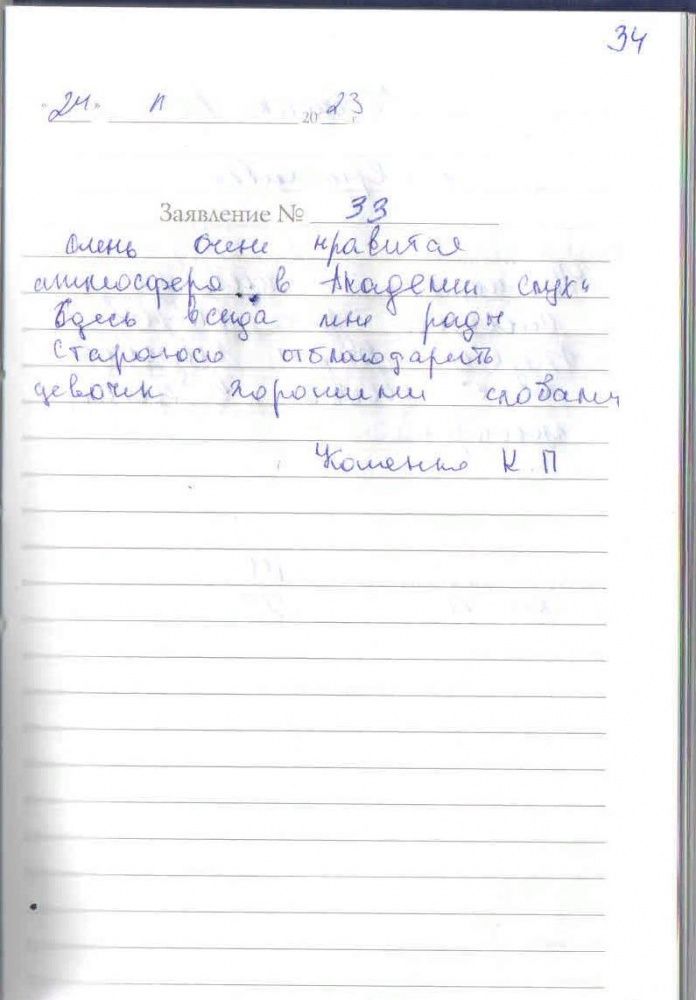 34
"24" 11 2023 г
Заявление № 33
Очень очень нравится
атмосфера в Академии слуха
Здесь всегда мне рады
Стараюсь отблагодарить
девочек хорошими словами
К. П